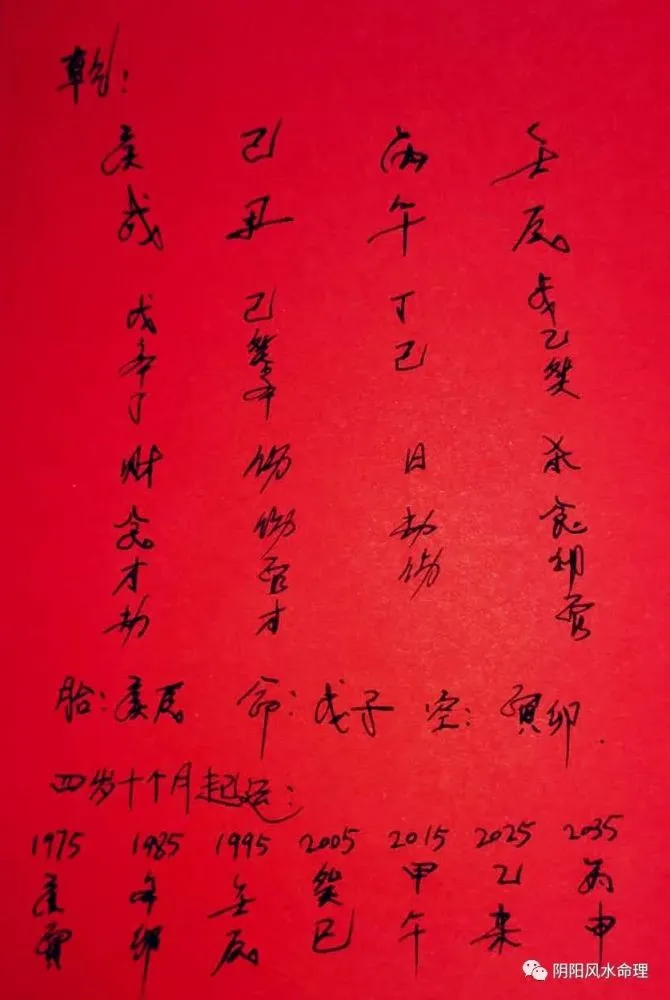 乾:
庚 己 丙 壬
戌 丑 午 辰
戊 己 丁 戊
辛 癸 己 乙
丁 辛 癸
财 伤 日 杀
食 伤 劫 食
才 官 伤 印
劫 才 官
胎:庚辰 命:戊子 空:寅卯.
四岁十个月起运:
1975 1985 1995 2005 2015 2025 2035
庚 辛 壬 癸 甲 乙 丙
寅 卯 辰 巳 午 未 申
阴阳风水命理